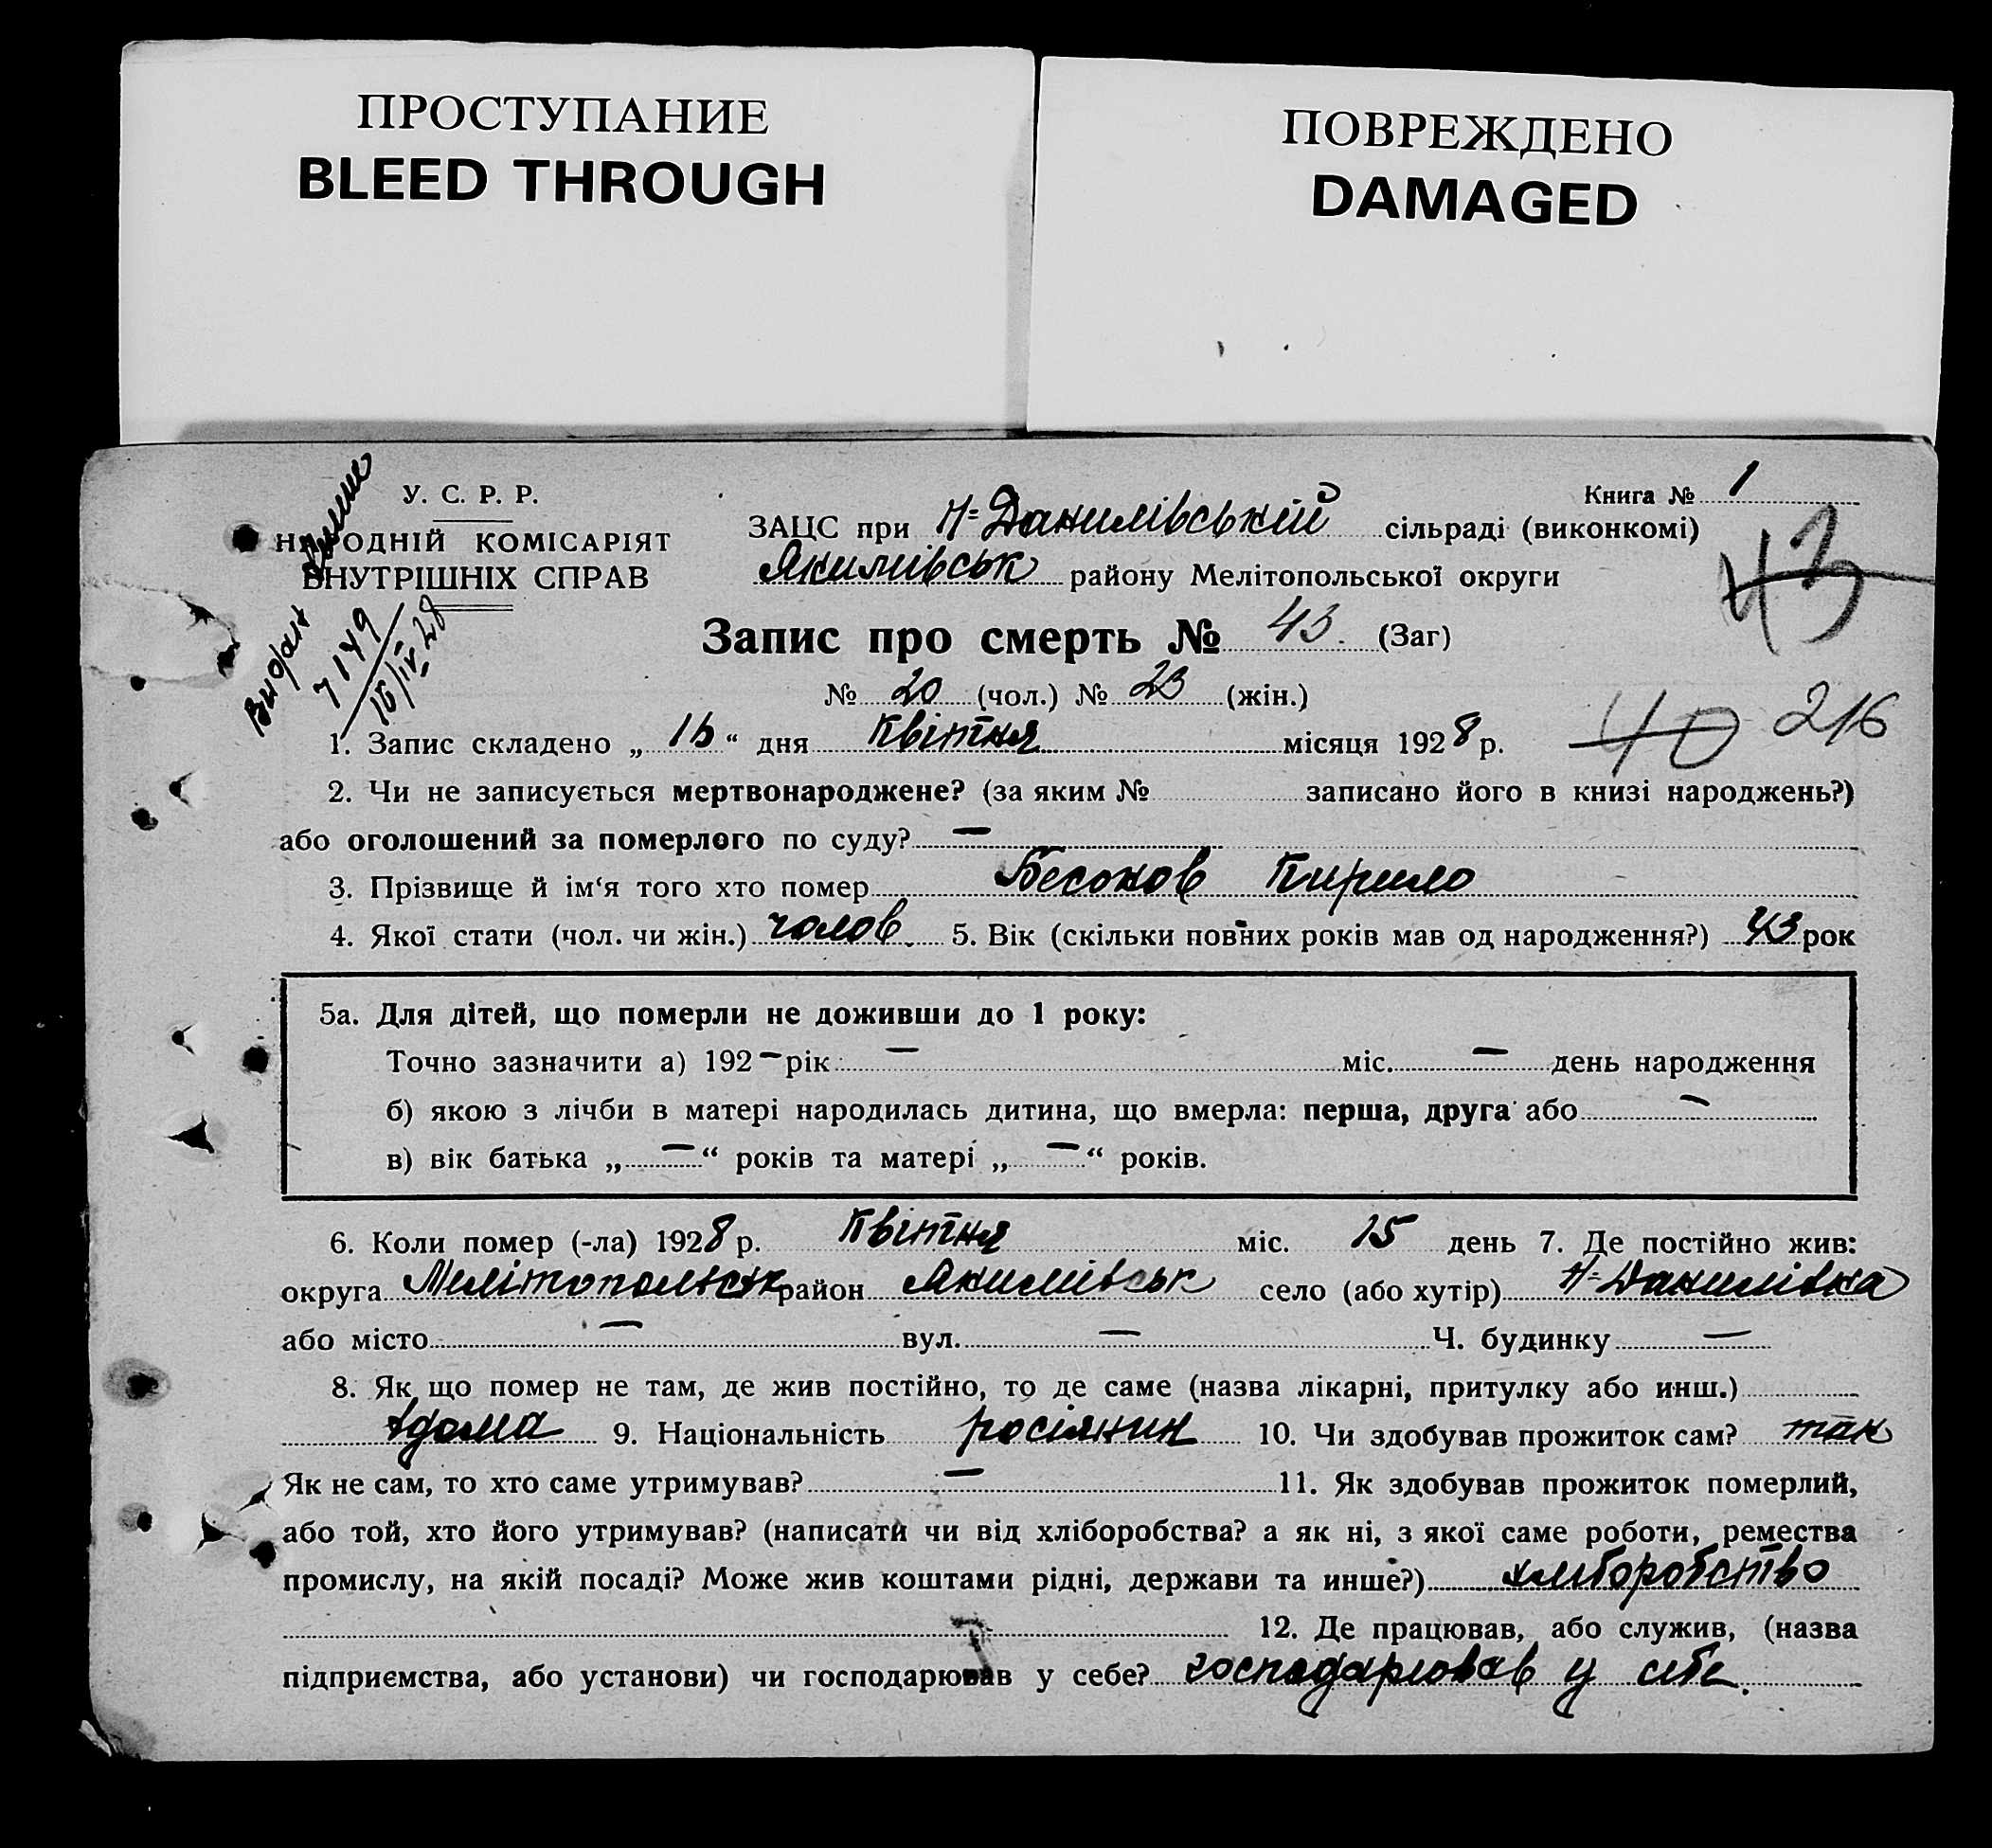 ПРОСТУПАНИЕ
BLEED THROUGH
ПОВРЕЖДЕНО
DAMAGED
У. С. Р. Р.
НАРОДНІЙ КОМІСАРІЯТ
ВНУТРІШНІХ СПРАВ
7149
16/IV 28
Книга № 1
ЗАЦС при Н-Данилівській сільраді (виконкомі)
Якимівськ району Мелітопольської округи
43
Запис про смерть № 43. (Заг)
№ 20 (чол.) № 23 (жін.)
40 216
1. Запис складено „ 16 “ дня Квітня місяця 1928 р.
2. Чи не записується мертвонароджене? (за яким № записано його в книзі народжень?)
або оголошений за померлого по суду? —
3. Прізвище й ім‘я того хто помер Бесонов Кирило
4. Якої стати (чол. чи жін.) чолов. 5. Вік (скільки повних років мав од народження?) 43 рок
5а. Для дітей, що померли не доживши до 1 року:
Точно зазначити а) 192 — рік — міс. — день народження
б) якою з лічби в матері народилась дитина, що вмерла: перша, друга або —
в) вік батька „ — “ років та матері „ — “ років.
6. Коли помер (-ла) 1928 р. Квітня міс. 15 день 7. Де постійно жив:
округа Мелітопольськ район Якимівськ село (або хутір) Н-Данилівка
або місто — вул. — Ч. будинку —
8. Як що помер не там, де жив постійно, то де саме (назва лікарні, притулку або инш.)
вдома 9. Національність росіянин 10. Чи здобував прожиток сам? так
Як не сам, то хто саме утримував? — 11. Як здобував прожиток померлий,
або той, хто його утримував? (написати чи від хліборобства? а як ні, з якої саме роботи, ремества
промислу, на якій посаді? Може жив коштами рідні, держави та инше?) хліборобство
12. Де працював, або служив, (назва
підприємства, або установи) чи господарював у себе? господарював у себе.